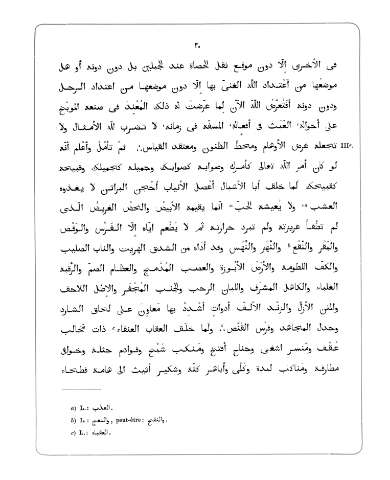 ٢٠
فى الأخرى إلّا دون موقع ثقل الحصاة عند الجبلين بل دون دونه أو هل
موضعها من اعتداد اللّه الغنىّ بها إلّا دون موضعها من اعتداد الرجل
ودون دونه أفتعرّى اللّه الآن لما عرّضت له ذلك المُعبّد فى صنعه الموبّخ
على أحواله العبث فى أفعاله المسفّه فى زمانه لا تضرب للّه الأمثال ولا
IIIv. تجعله عرض الأوهام ومحطّ الظنون ومعتقد القياس ثم تأمّل وآعلم أنّه
لو كان أمر اللّه تعالى كأمرك وصوابه كصوابك وجميله كجميلك وقبيحه
كقبيحك لما خلق أبا الأشبال أعصل الأنياب أحجن البراثن لا يغذوه
العشب ولا يعيشه الحَبّ إنّما يقيمه الأبيض والنحض الغريض الذى
لم تطفأ غريزته ولم تبرد حرارته ثم لا يَطعم إيّاه إلّا الفَرْس والوَقص
والبَقْر والنَّهْر والنَّهْس وقد أداه من الشدق الهريت والناب الصليب
والكفّ اللطومة والأرض العصب المُدمج والعظام الصمّ والرقبة
الغلباء والكاهل المشرف واللبان الرحب والجنب المُجْفَر والإطل اللاحف
والمتن الأزلّ أدوات أشدد بها معاون على لحاق الشارد
وجدل المجاهد وفرس القنص ولما خلف العقاب العنقاء ذات مخالب
عُقف ومنسر أشغى وجناح أفتخ ومنكب شَنِج وقوادم حثلة وخوافى
مطارفة ومناكب لبدة وكُلًى وأباهر كثّة وشكير أثيث إلى هامة فطحاء
a) L.: العذب.
b) L.: والنقع, peut-être: والبعج.
c) L.: العقباء.